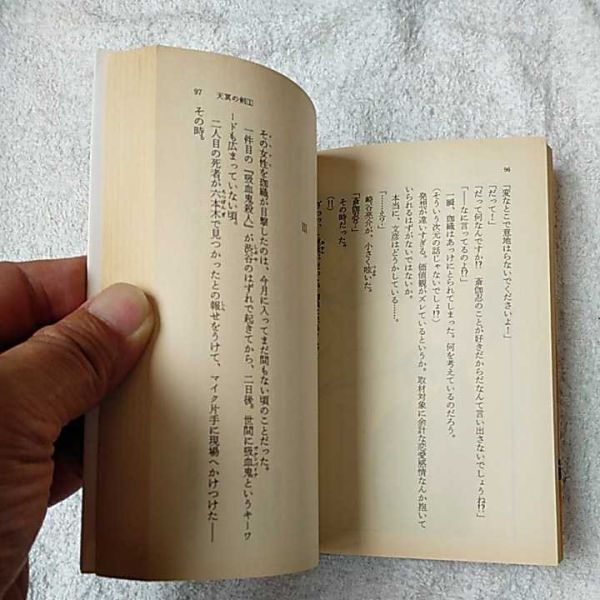 96
「変なとこで意地はらないでくださいよー」
「だって！」
「だって何なんですか!?　斎伽忍のことが好きだからだなんて言い出さないでしょうね!?」
「――なに言ってるのよ!?」
一瞬、伽織はあっけにとられてしまった。何を考えているのだろう。
（そういう次元の話じゃないでしょ!?）
発想が違いすぎる。価値観がズレているというか。取材対象に余計な恋愛感情なんか抱いて
いられるはずがないではないか。
本当に、文彦はどうかしている……。
「……え？」
崎谷亮介が、小さく呟いた。
その時だった。
「斎伽忍？」
（!!）
97　天冥の剣1
III
その女性を伽織が目撃したのは、今月に入ってまだ間もない頃のことだった。
一件目の『吸血鬼殺人』が渋谷のはずれで起きてから、二日後。世間に吸血鬼というキーワ
ードも広まっていない頃。
二人目の死者が六本木で見つかったとの報せをうけて、マイク片手に現場へかけつけた――
その時。